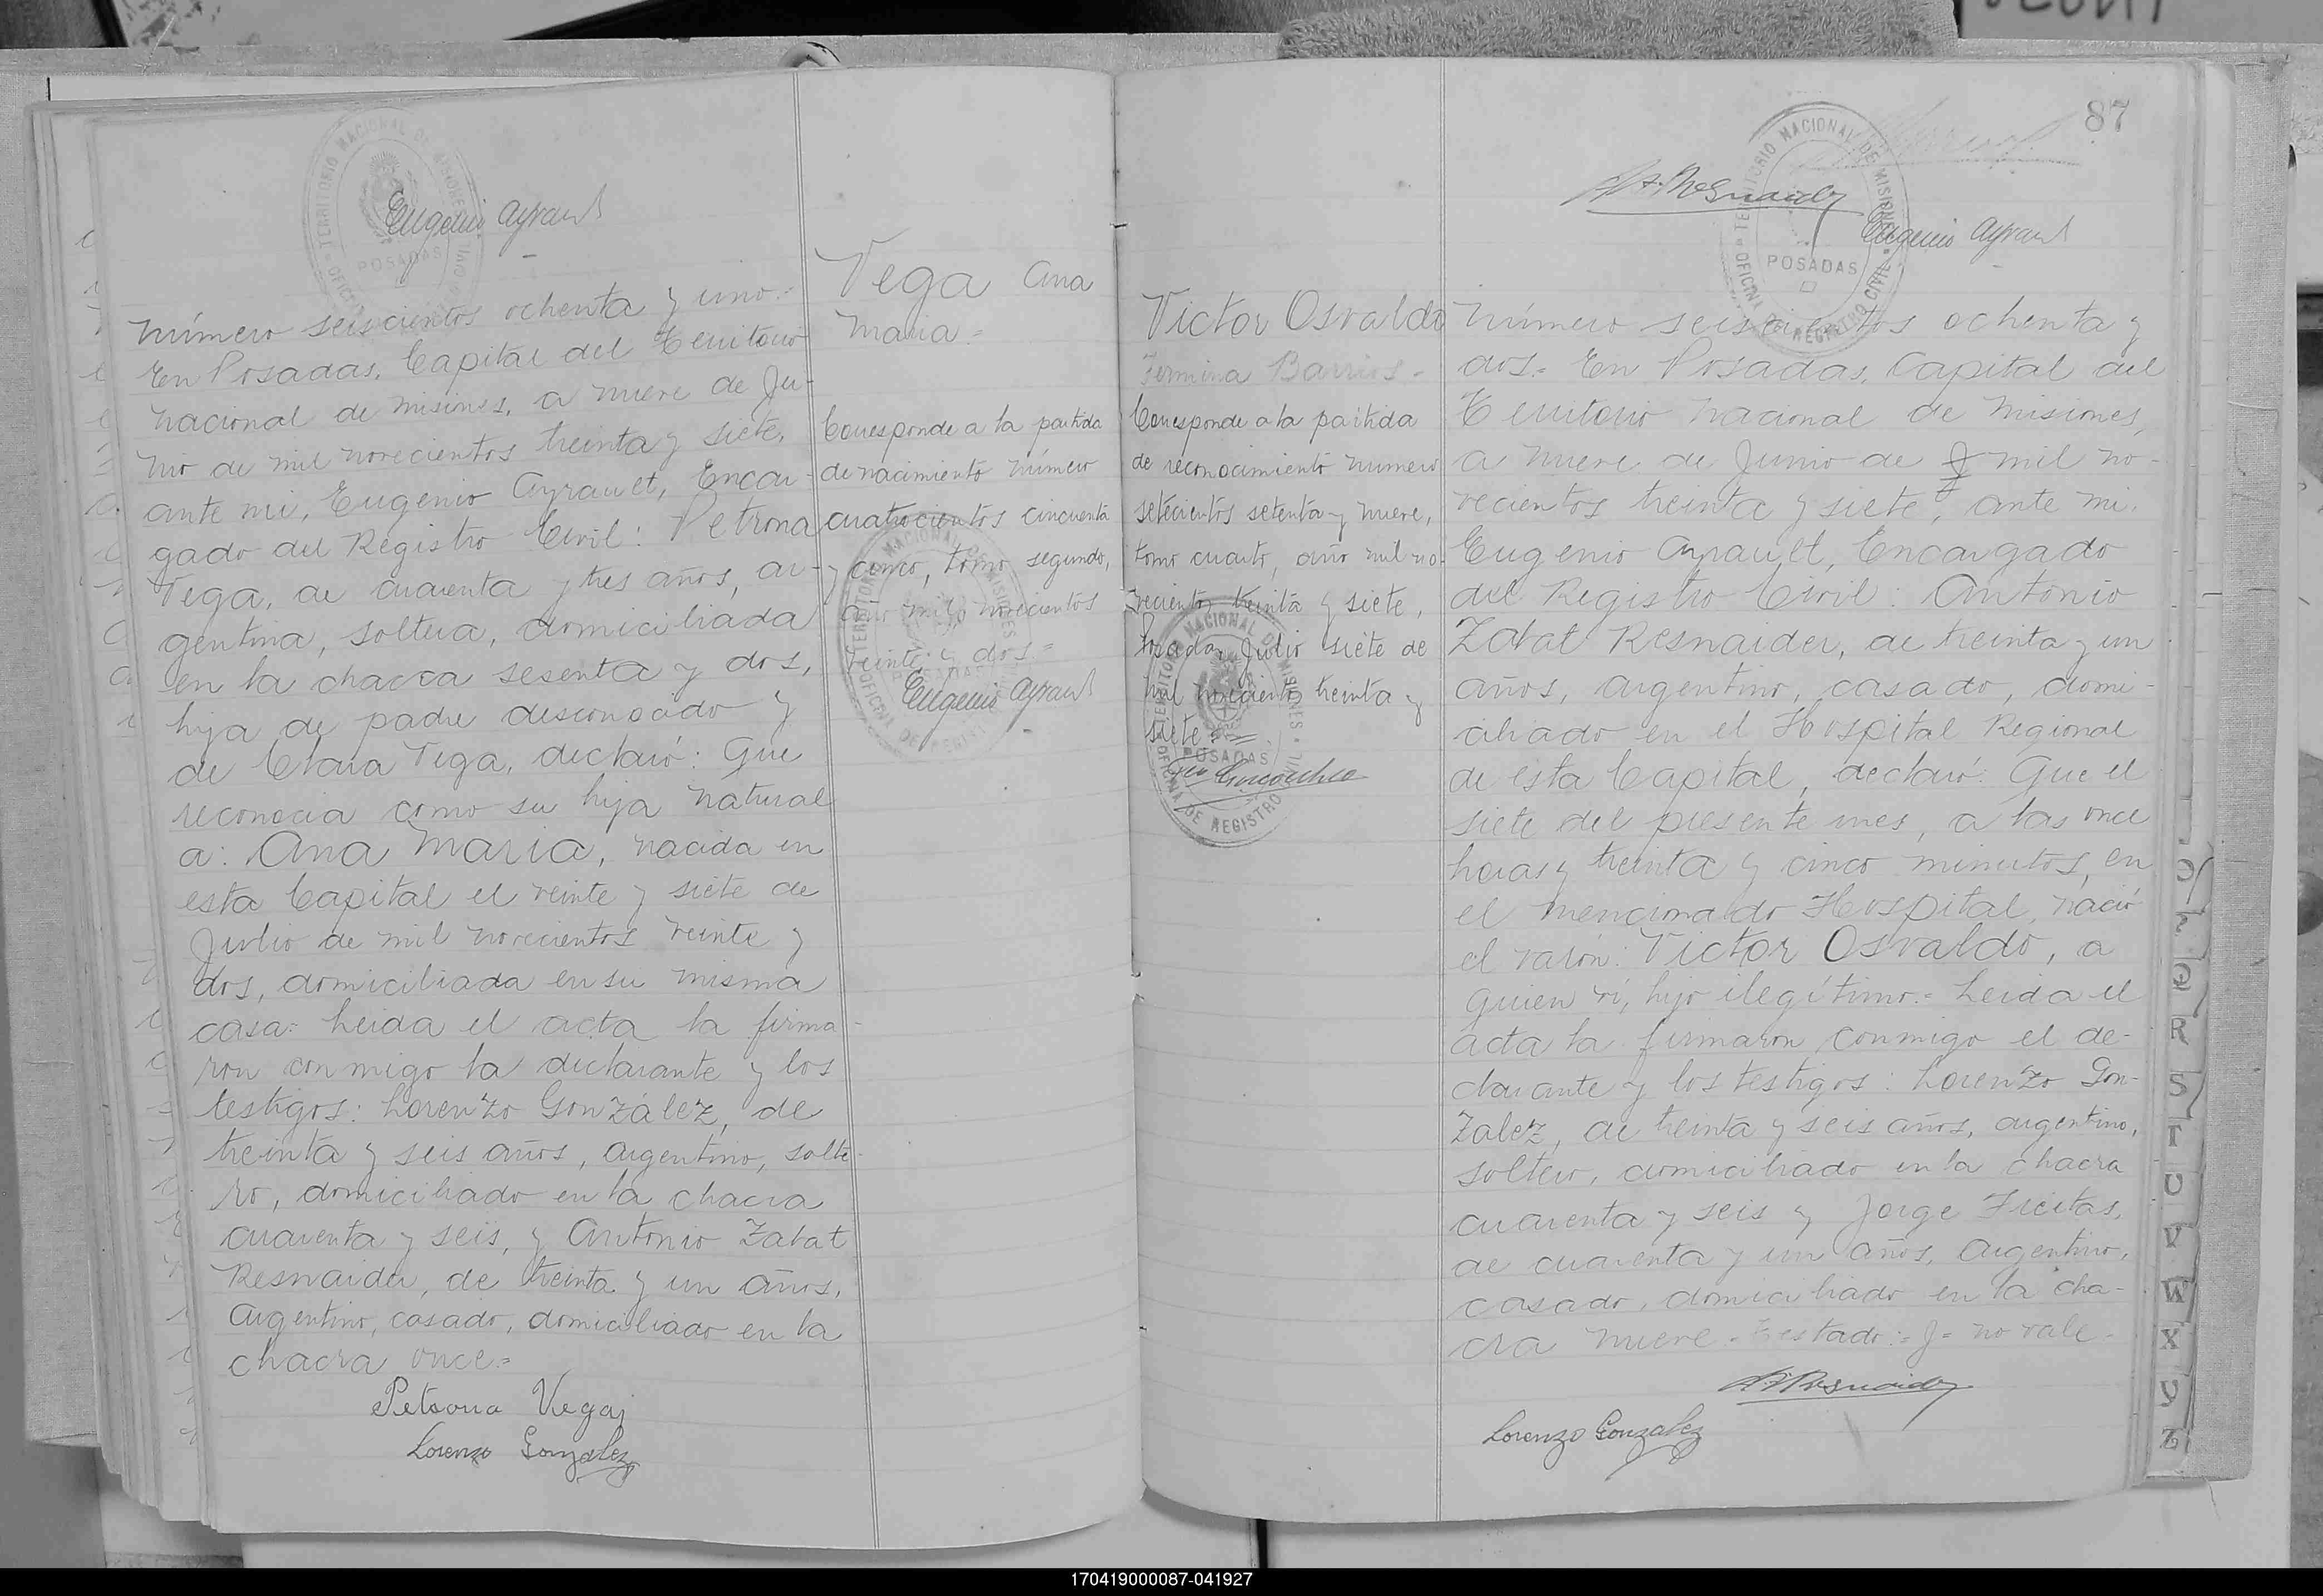 Eugenio Ayrault
TERRITORIO NACIONAL DE MISIONES
OFICINA
POSADAS
Número seiscientos ochenta y uno.=
En Posadas, Capital del Territorio
nacional de Misiones, a nueve de Ju-
nio de mil novecientos treinta y siete,
ante mi, Eugenio Ayrault, Encar-
gado del Registro Civil: Petrona
Vega, de cuarenta y tres años, ar-
gentina, soltera, domiciliada
en la chacra sesenta y dos,
hija de padre desconocido y
de Clara Vega, declaró: Que
reconocia como su hija natural
a: Ana Maria, nacida en
esta Capital el veinte y siete de
Julio de mil novecientos veinte y
dos, domiciliada en su misma
casa= Leida el acta la firma-
ron conmigo la declarante y los
testigos: Lorenzo González, de
treinta y seis años, argentino, solte-
ro, domiciliado en la chacra
cuarenta y seis, y Antonio Zabat
Resnaider, de treinta y un años,
argentino, casado, domiciliado en la
chacra once.=
Petrona Vega
Lorenzo Gonzalez
Vega Ana
Maria=
Corresponde a la partida
de nacimiento número
cuatrocientos cincuenta
y cinco, tomo segundo,
año mil novecientos
veinte y dos=
Eugenio Ayrault
Victor Osvaldo
Fermina Barrios=
Corresponde a la partida
de reconocimiento número
setecientos setenta y nueve,
tomo cuarto, año mil no-
vecientos treinta y siete,
Posadas, Julio siete de
mil novecientos treinta y
siete.=
TERRITORIO NACIONAL DE MISIONES
OFICINA DE REGISTRO CIVIL
POSADAS
87
A. Z. Resnaider
Eugenio Ayrault
TERRITORIO NACIONAL DE MISIONES
OFICINA DE REGISTRO CIVIL
POSADAS
Número seiscientos ochenta y
dos.= En Posadas, Capital del
Territorio nacional de Misiones,
a nueve de Junio de J mil no-
vecientos treinta y siete, ante mi,
Eugenio Ayrault, Encargado
del Registro Civil: Antonio
Zabat Resnaider, de treinta y un
años, argentino, casado, domi-
ciliado en el Hospital Regional
de esta Capital, declaró: Que el
siete del presente mes, a las once
horas y treinta y cinco minutos, en
el mencionado Hospital, nació
el varón: Victor Osvaldo, a
quien vi, hijo ilegítimo.= Leida el
acta la firmaron conmigo el de-
clarante y los testigos: Lorenzo Gon-
zalez, de treinta y seis años, argentino,
soltero, domiciliado en la chacra
cuarenta y seis y Jorge Freitas,
de cuarenta y un años, argentino,
casado, domiciliado en la cha-
cra nueve.= Testado:= J= no vale=
A. Z. Resnaider
Lorenzo Gonzalez
Q
R
S
T
U
V
W
X
Y
Z
170419000087-041927